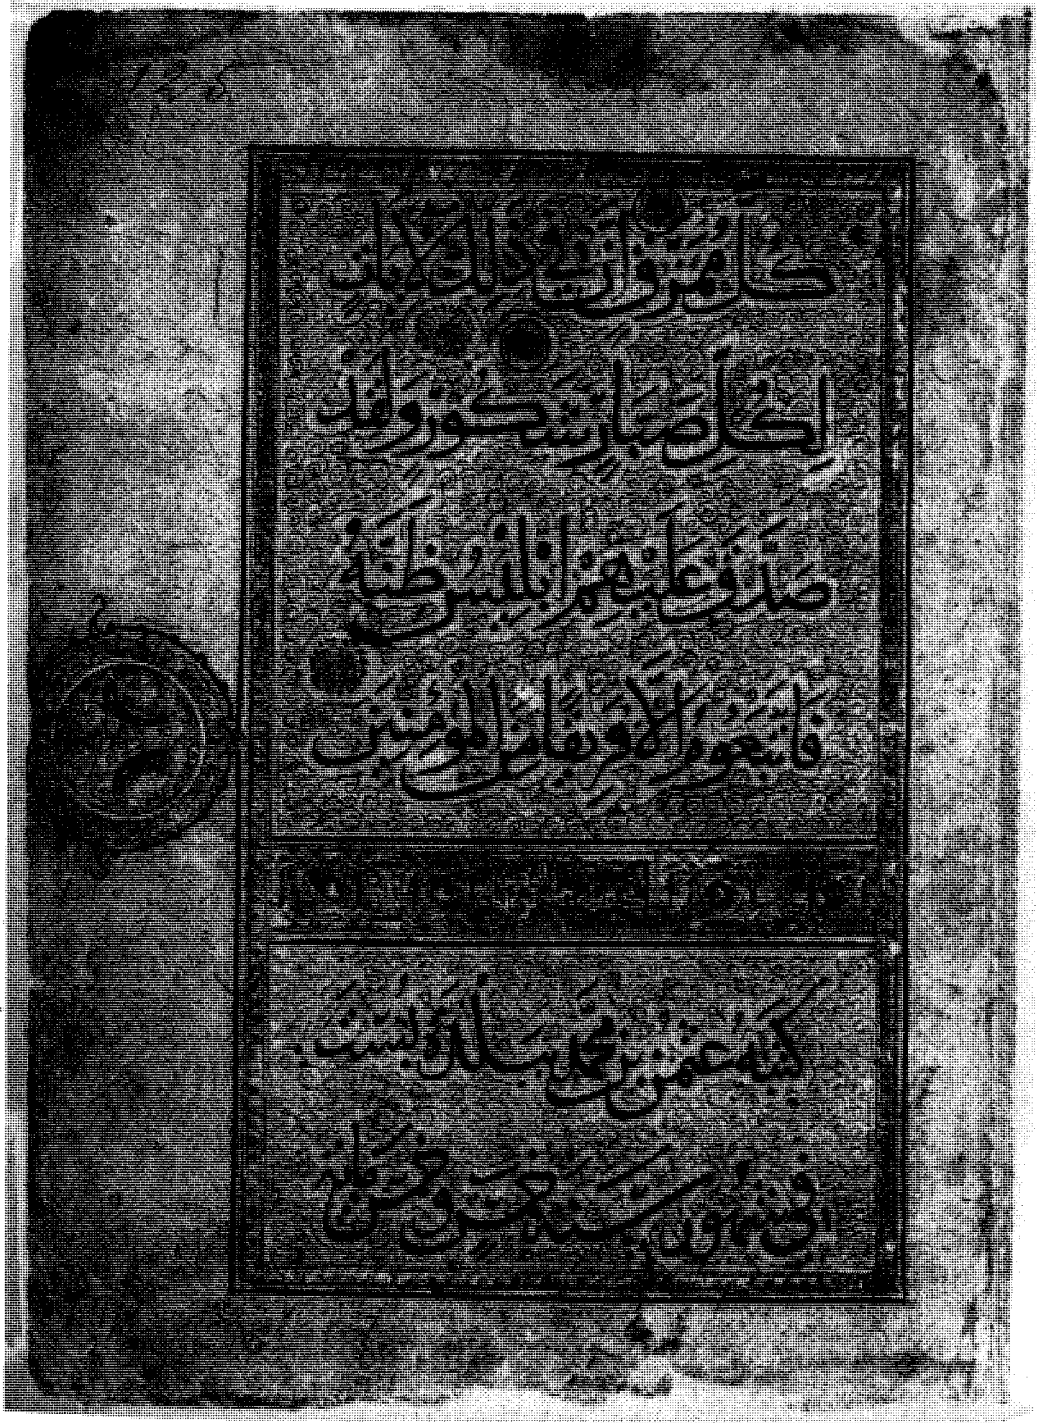 كُلَّ مُمَزَّقٍ إِنَّ فِي ذَٰلِكَ لَآيَاتٍ
لِكُلِّ صَبَّارٍ شَكُورٍ وَلَقَدْ
صَدَّقَ عَلَيْهِمْ إِبْلِيسُ ظَنَّهُ
فَاتَّبَعُوهُ إِلَّا فَرِيقًا مِنَ الْمُؤْمِنِينَ
كتبه عثمن بن محمد ببلدة بست
في شهور سنة خمس وخمس مائة